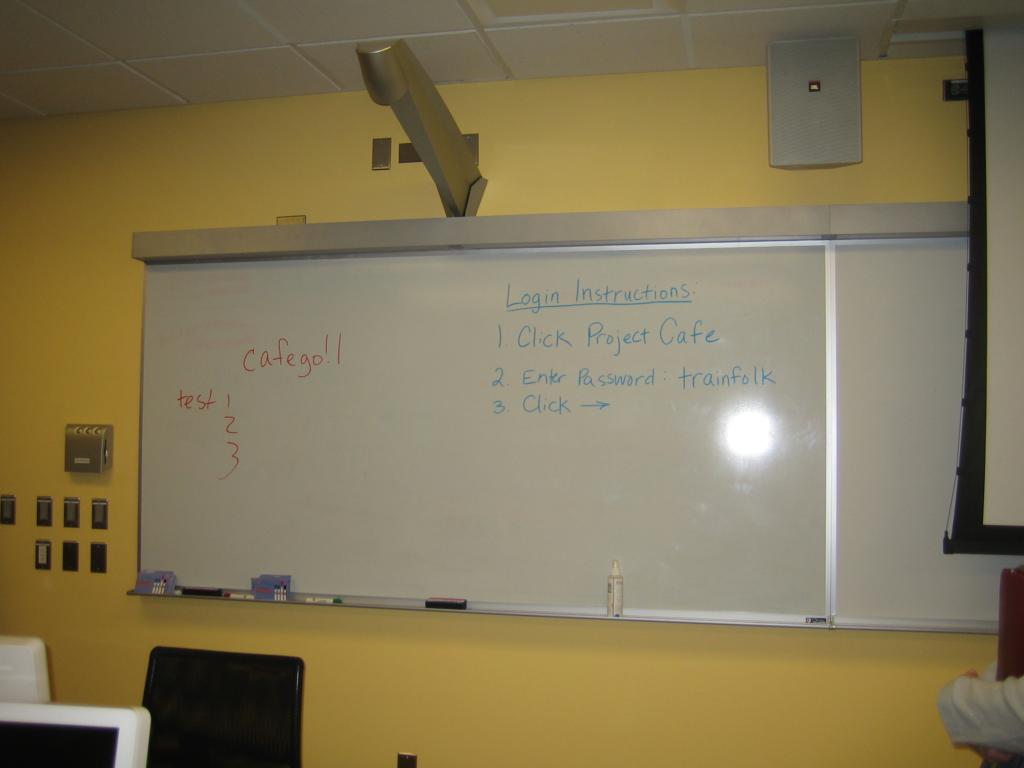 cafego!1
test 1
2
3
Login Instructions:
1. Click Project Cafe
2. Enter Password: trainfolk
3. Click →